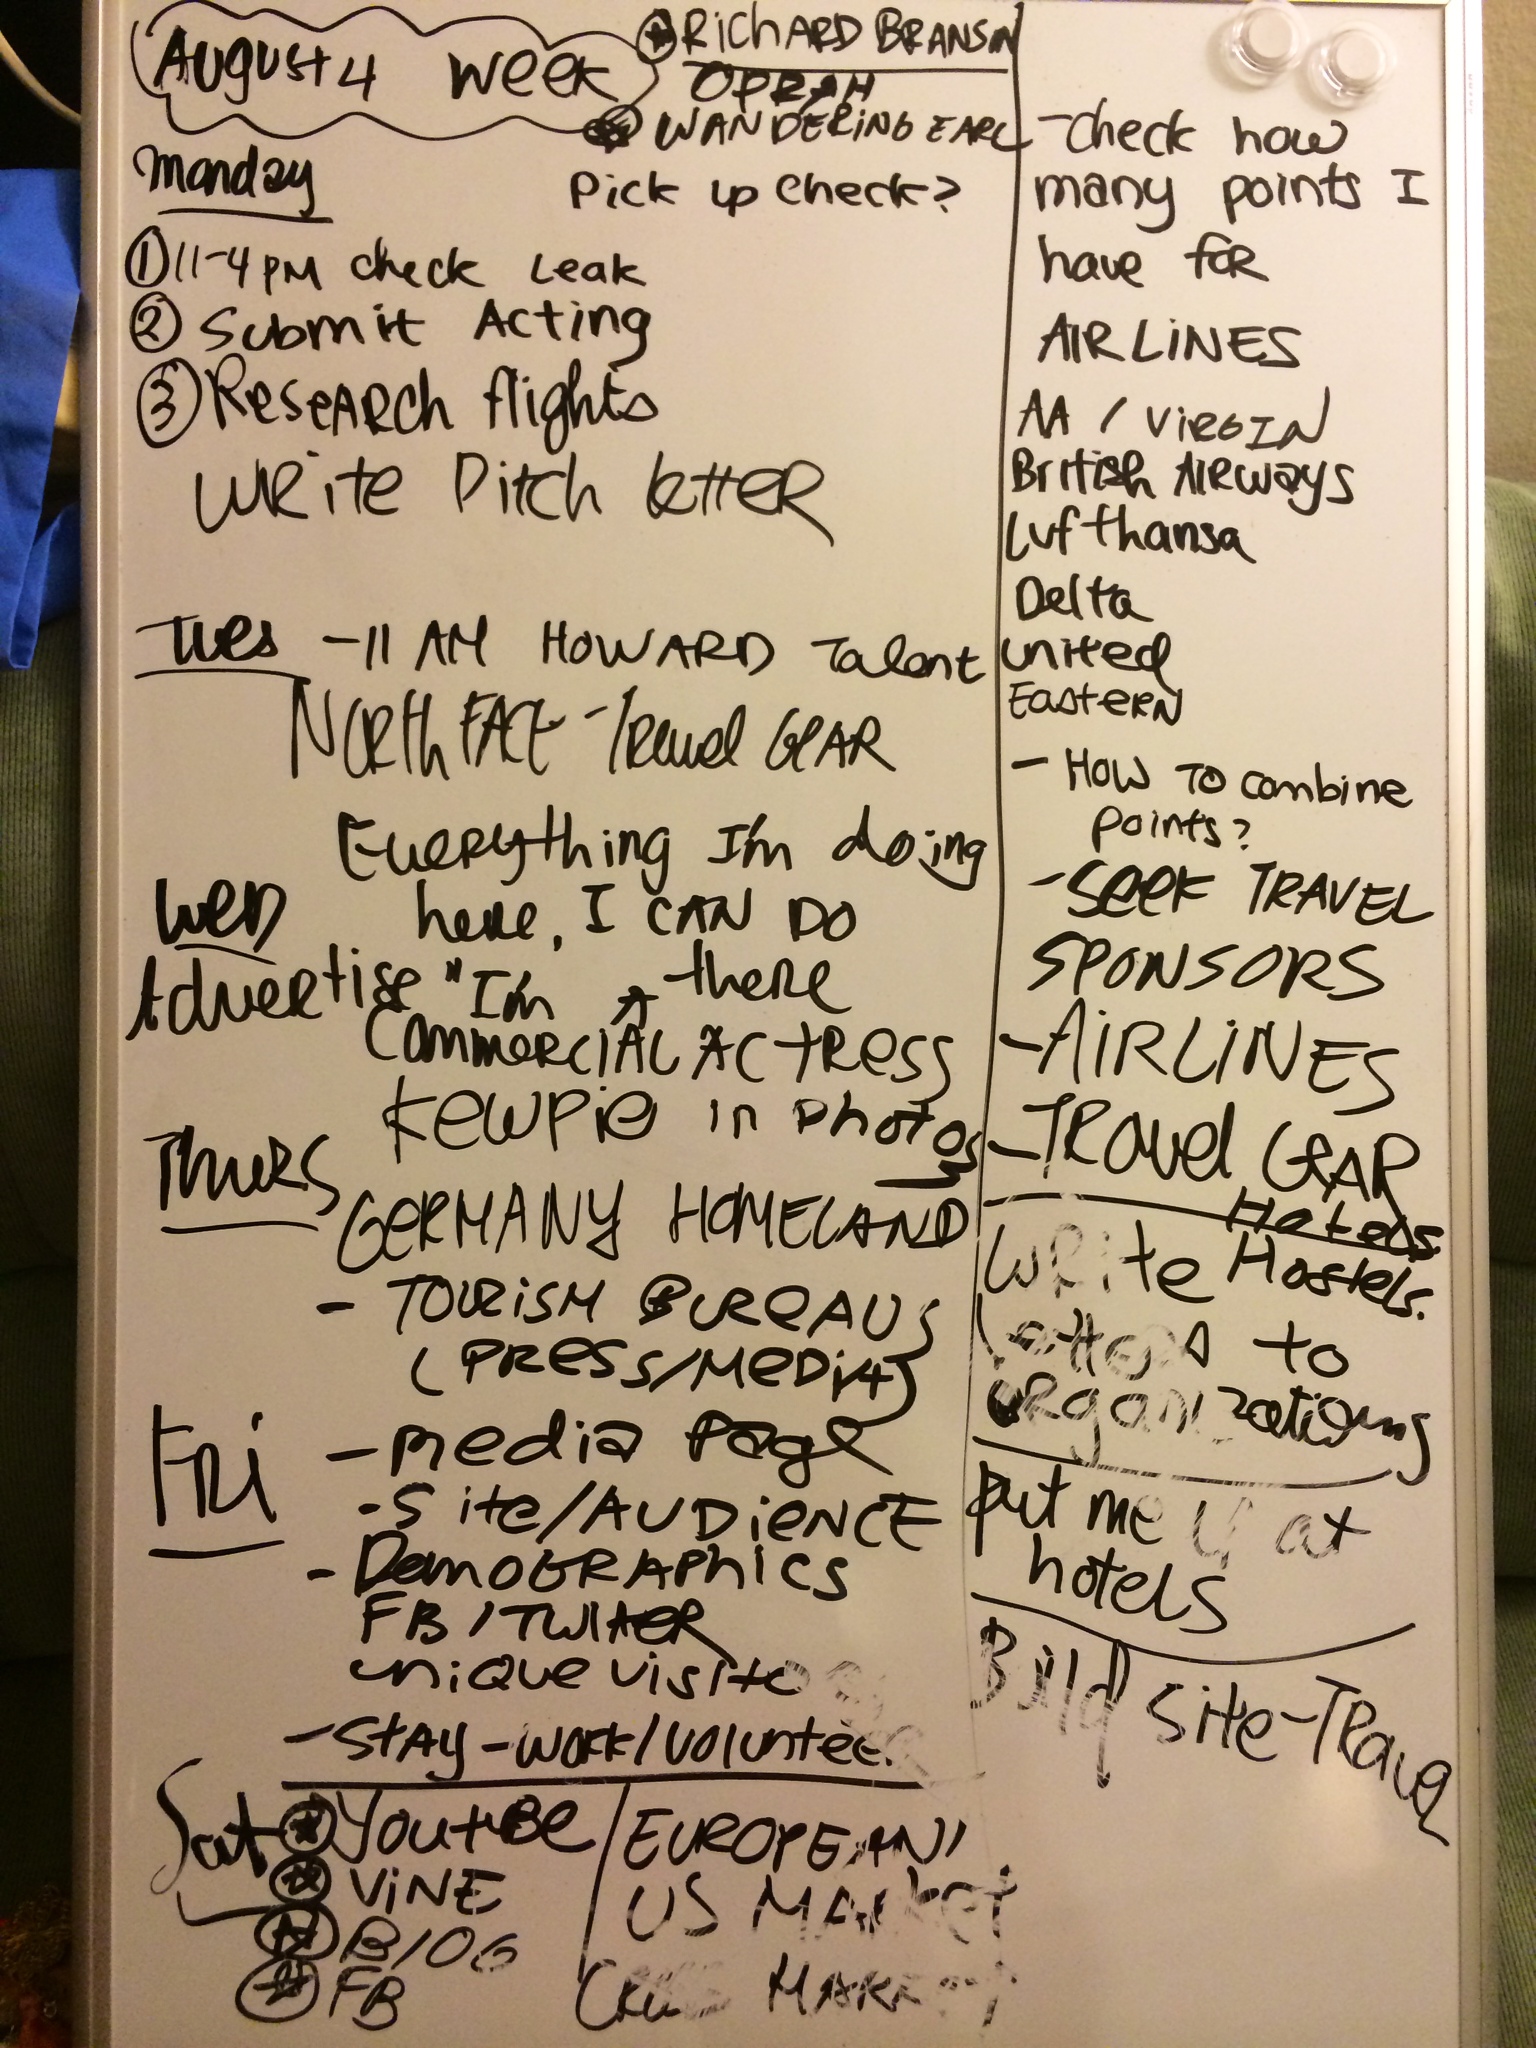 August 4 week
RICHARD BRANSON
OPRAH
WANDERING EARL
Monday
Pick up check?
① 11-4 PM check leak
② Submit Acting
③ Research flights
Write Pitch letter
Tues - 11 AM HOWARD Talent
NORTH FACE - Travel GEAR
Everything I'm doing
here, I CAN DO
there
WED
Advertise "I'm A
COMMERCIAL ACTRESS
KEWPIE in photos
Thurs
GERMANY HOMELAND
- TOURISM BUREAUS
(PRESS/MEDIA)
Fri
- Media Page
- Site/AUDIENCE
- DEMOGRAPHICS
FB / TWITTER
unique visito
- STAY - WORK/volunteer
Sat
YoutuBe
VINE
BlOG
FB
EUROPEAN/
US MARKET
MARKET
- Check how
many points I
have for
AIRLINES
AA / VIRGIN
British AIRWAYS
Lufthansa
Delta
united
EasteRN
- HOW TO combine
points?
- SEEK TRAVEL
SPONSORS
- AIRLINES
- TRavel GEAR
Hotels
Write Hostels.
Letters to
organizations
put me up at
hotels
Build site-Travel